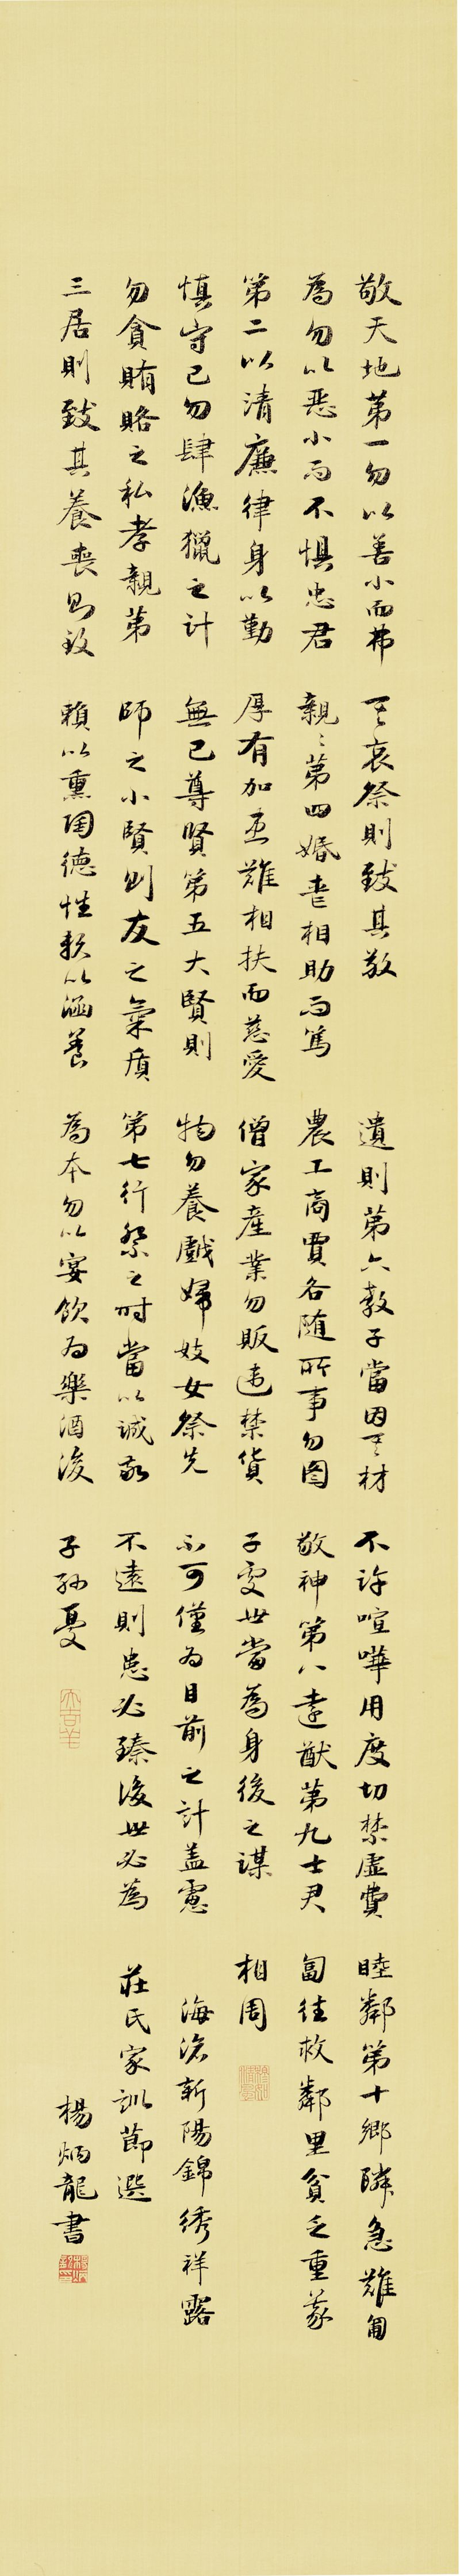 敬天地第一勿以善小而弗
為勿以惡小而不懼忠君
第二以清廉律身以勤
慎守己勿肆漁獵之計
勿貪賄賂之私孝親第
三居則致其養喪則致
其哀祭則致其敬
親〻第四婚喪相助而篤
厚有加患難相扶而慈愛
無已尊賢第五大賢則
師之小賢則友之氣質
賴以熏陶德性賴以涵養
遺則第六教子當因其材
農工商賈各隨所事勿圖
僧家產業勿販违禁貨
物勿養戲婦妓女祭先
第七行祭之时當以誠敬
為本勿以宴飲为樂酒後
不許喧嘩用度切禁虛費
敬神第八遠猷第九士君
子處世當為身後之謀
不可僅为目前之計蓋慮
不遠則患必臻後世必為
子孫憂
大吉羊
睦鄰第十鄉隣急難匍
匐往救鄰里貧乏重義
相周
海滄新陽錦绣祥露
莊氏家訓節選
楊炳龍書